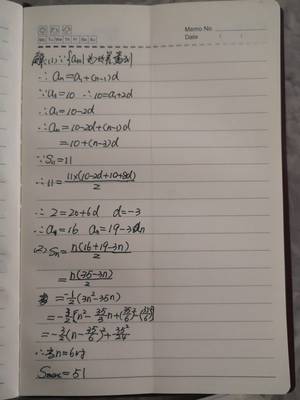 Memo No.
Mo Tu We Th Fr Sa Su
Date / /
解:(1)∵{an}为等差数列
∴an=a1+(n-1)d
∵a3=10 ∴10=a1+2d
∴a1=10-2d
∴an=10-2d+(n-1)d
=10+(n-3)d
∵S11=11
∴11=11×(10-2d+10+8d)/2
∴2=20+6d d=-3
∴a1=16 an=19-3n
(2)Sn=n(16+19-3n)/2
=n(35-3n)/2
=-1/2(3n²-35n)
=-3/2[n²-35/3n+(35/6)²-(35/6)²]
=-3/2(n-35/6)²+35²/24
∴当n=6时
Smax=51